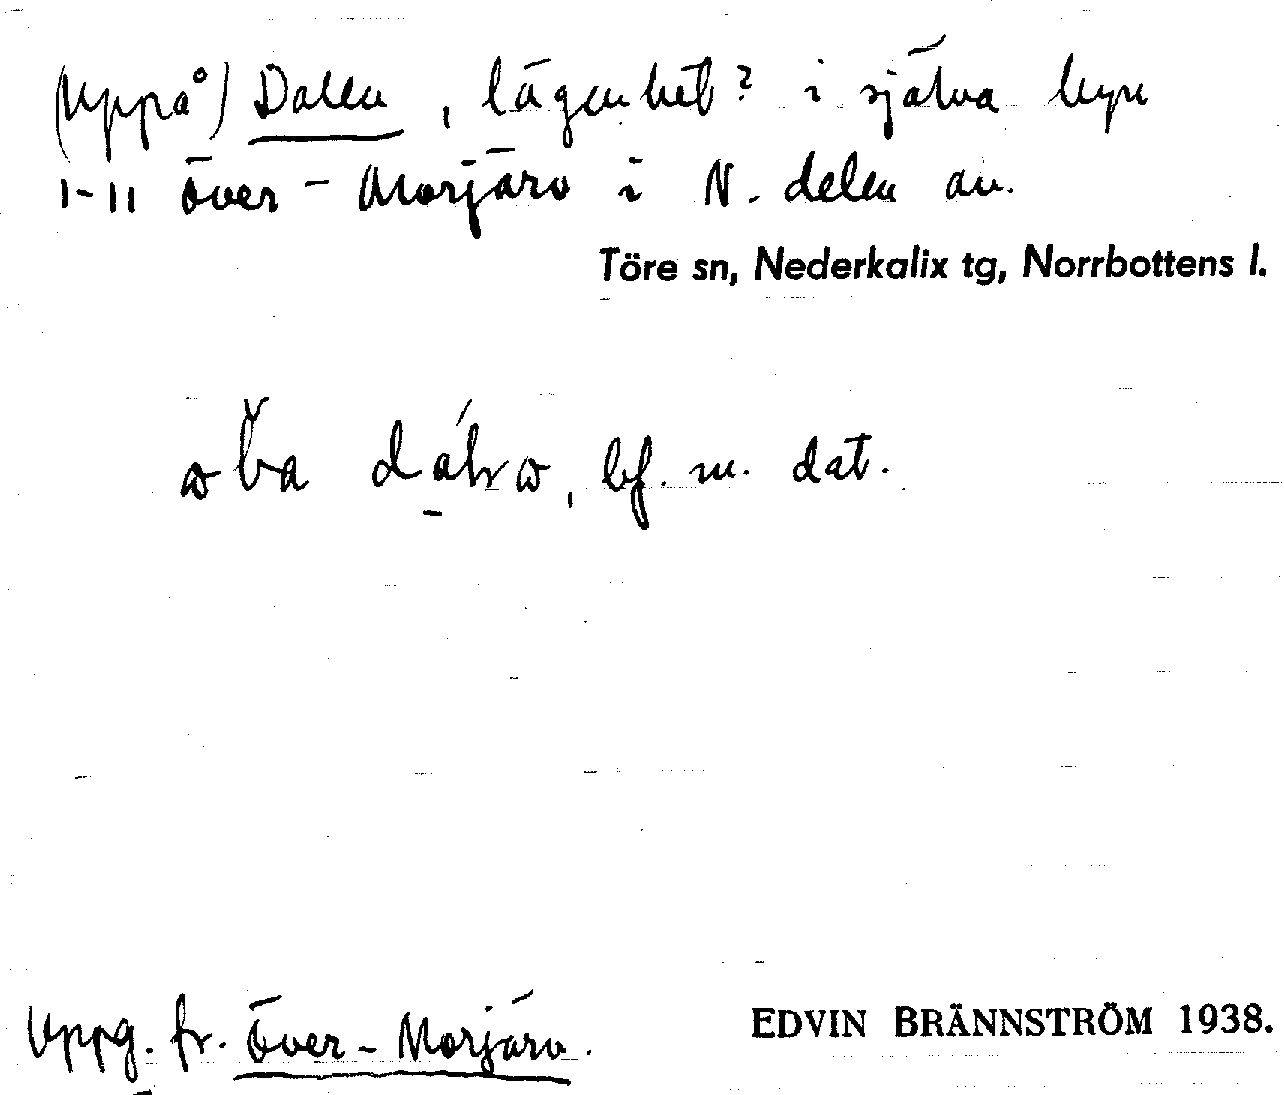 (Uppå) Dalen, lägenhet? i själva byn
1-11 Över-Morjärv i N. delen av.
Töre sn, Nederkalix tg, Norrbottens l.
bf. m. dat.
Uppg. fr. Över-Morjärv.
EDVIN BRÄNNSTRÖM 1938.